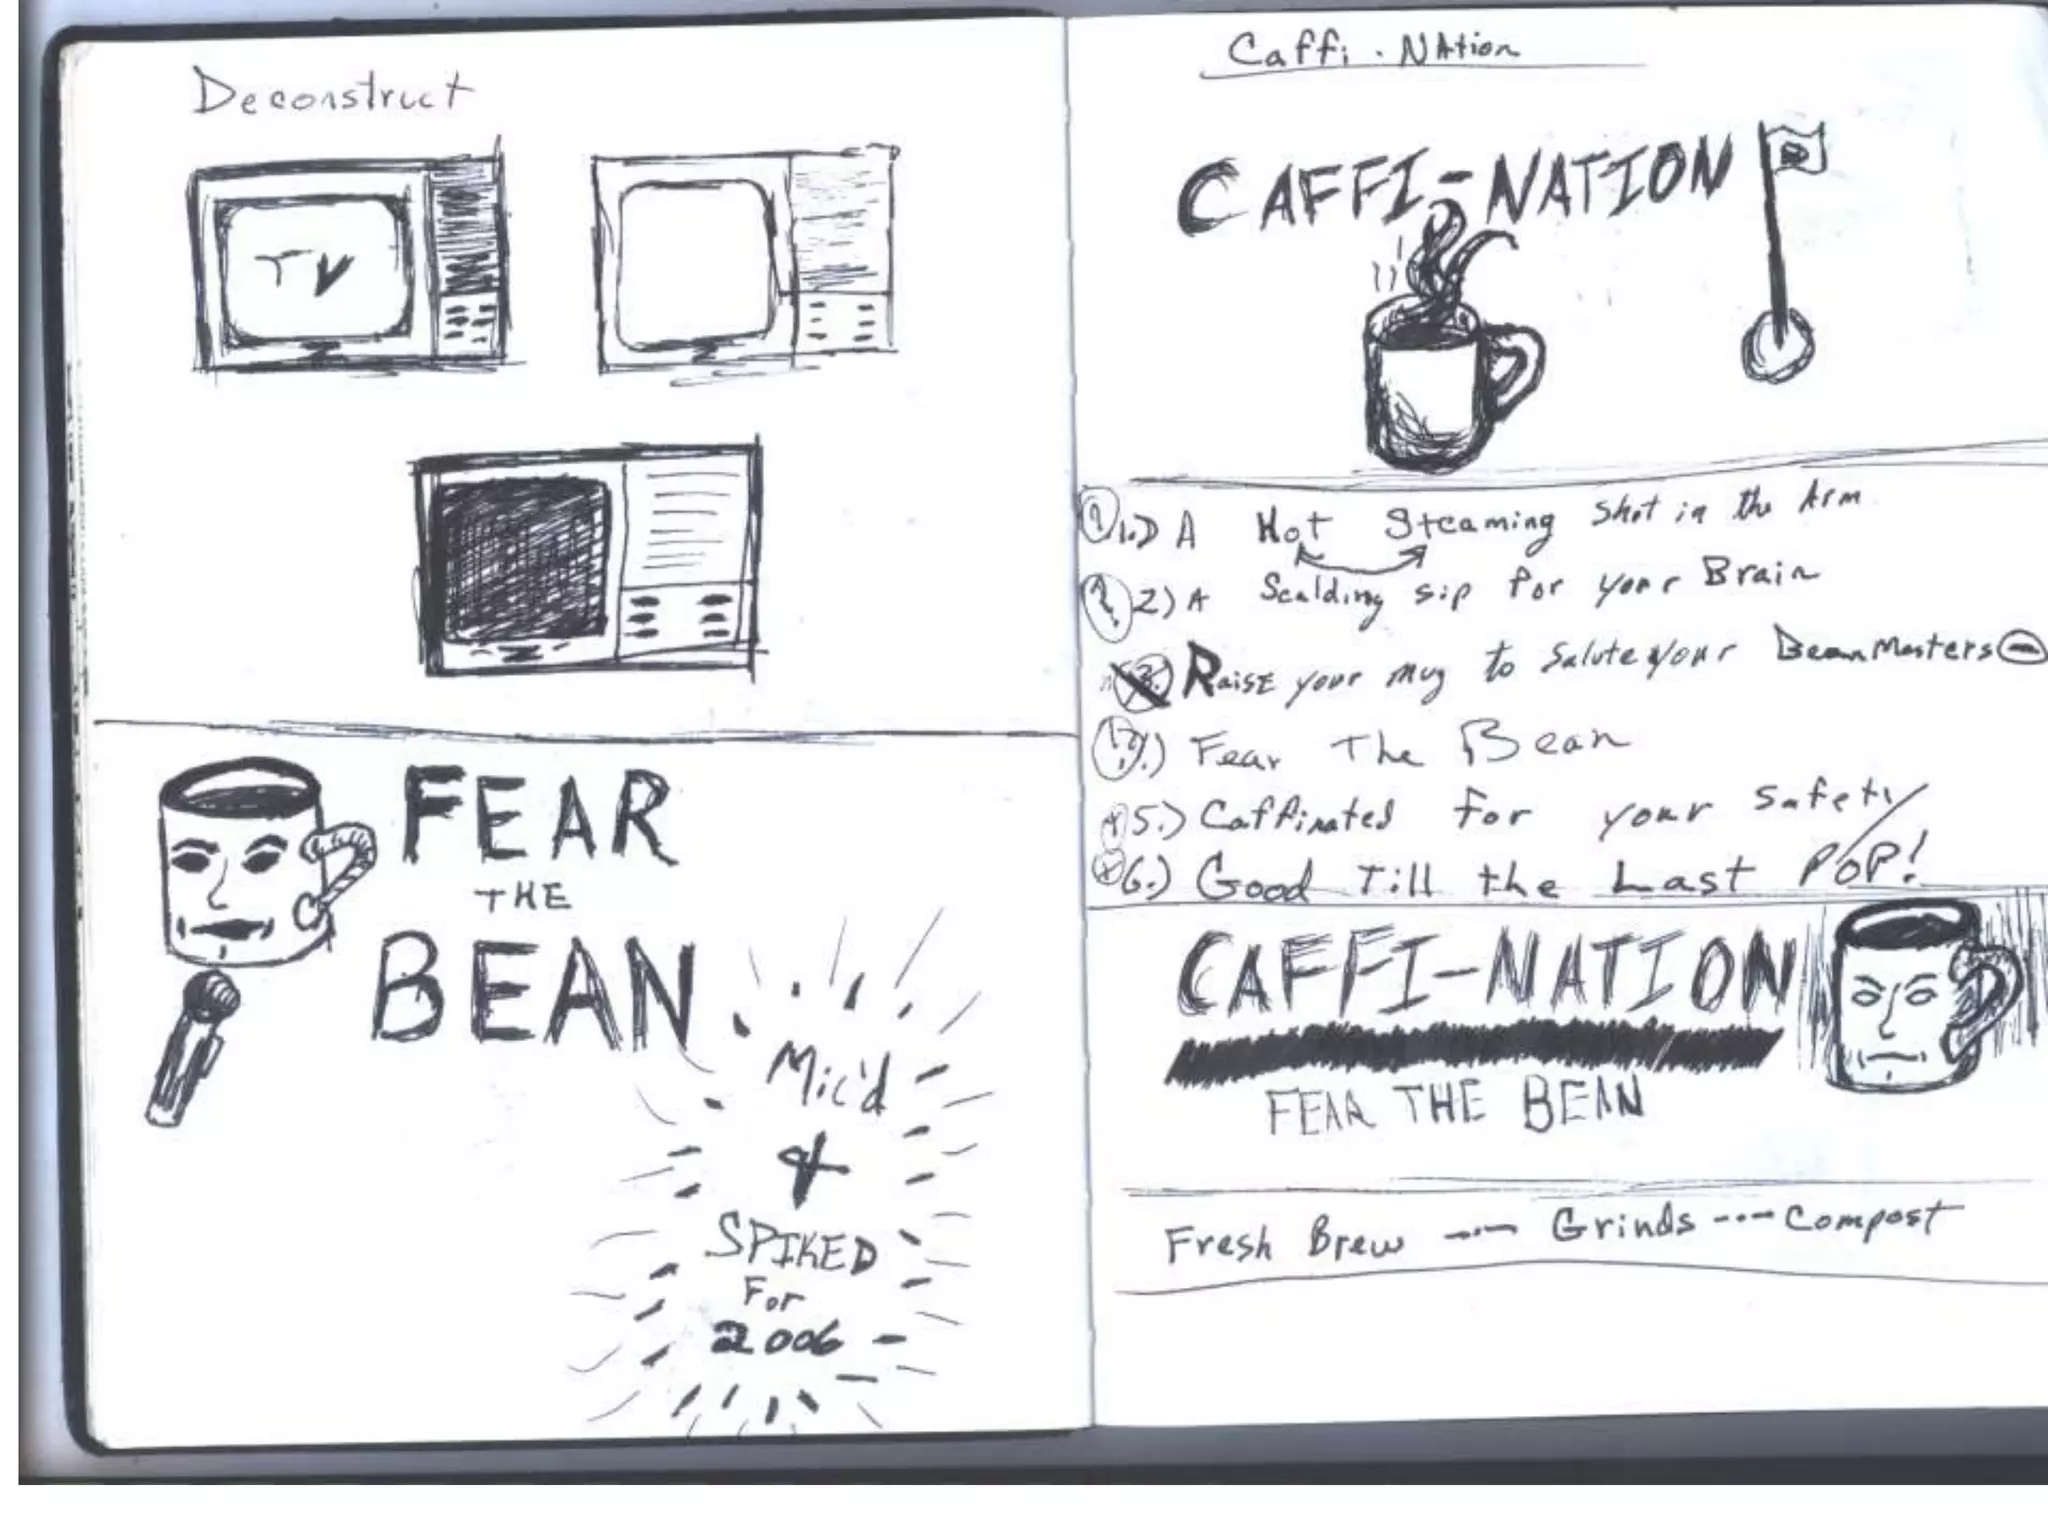 Deconstruct
TV
FEAR
THE
BEAN
Mic'd
&
SPIKED
For
2006
Caffi . NAtion
CAFFI-NATION
1.) A Hot Steaming Shot in the Arm
2) A Scalding sip for your Brain
3. Raise your mug to Salute your BeanMasters
) Fear The Bean
5.) Caffinated for your safety
6.) Good Till the Last POP!
CAFFI-NATION
FEAR THE BEAN
Fresh Brew --- Grinds --- Compost